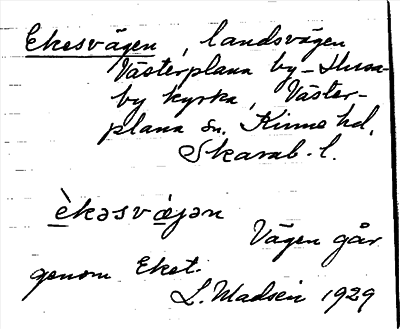 Ekesvägen, landsvägen
Västerplana by – Husa-
by kyrka, Väster-
plana sn. Kinne hd,
Skarab. l.
è̱kəsvǽ̱jən
Vägen går
genom Eket.
L. Madsén 1929